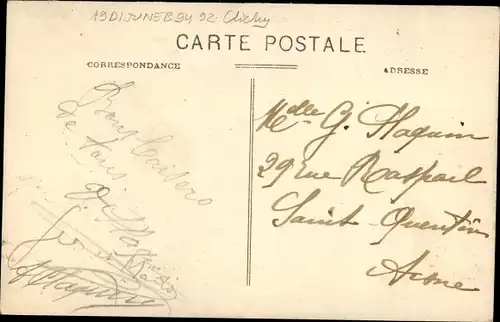 19DIJUNEB94 92 Clichy
CARTE POSTALE
CORRESPONDANCE
ADRESSE
Bons Baisers
de Paris
Melle G. Haquin
29 Rue Raspail
Saint-Quentin
Aisne